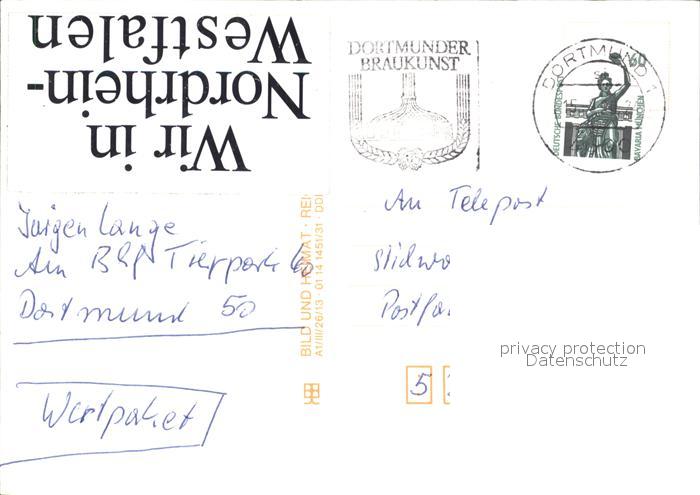 Wir in
Nordrhein-
Westfalen
DORTMUNDER
BRAUKUNST
DORTMUND 1
60
DEUTSCHE BUNDESPOST
BAVARIA MÜNCHEN
Jürgen Lange
Am Bhf Tierpark 60
Dortmund 50
Wertpaket
BILD UND HEIMAT · REI
A1/III/26/13 · 01 14 1451/31 · DDR
An Telepost
Stichwo
Postfa
5
privacy protection
Datenschutz